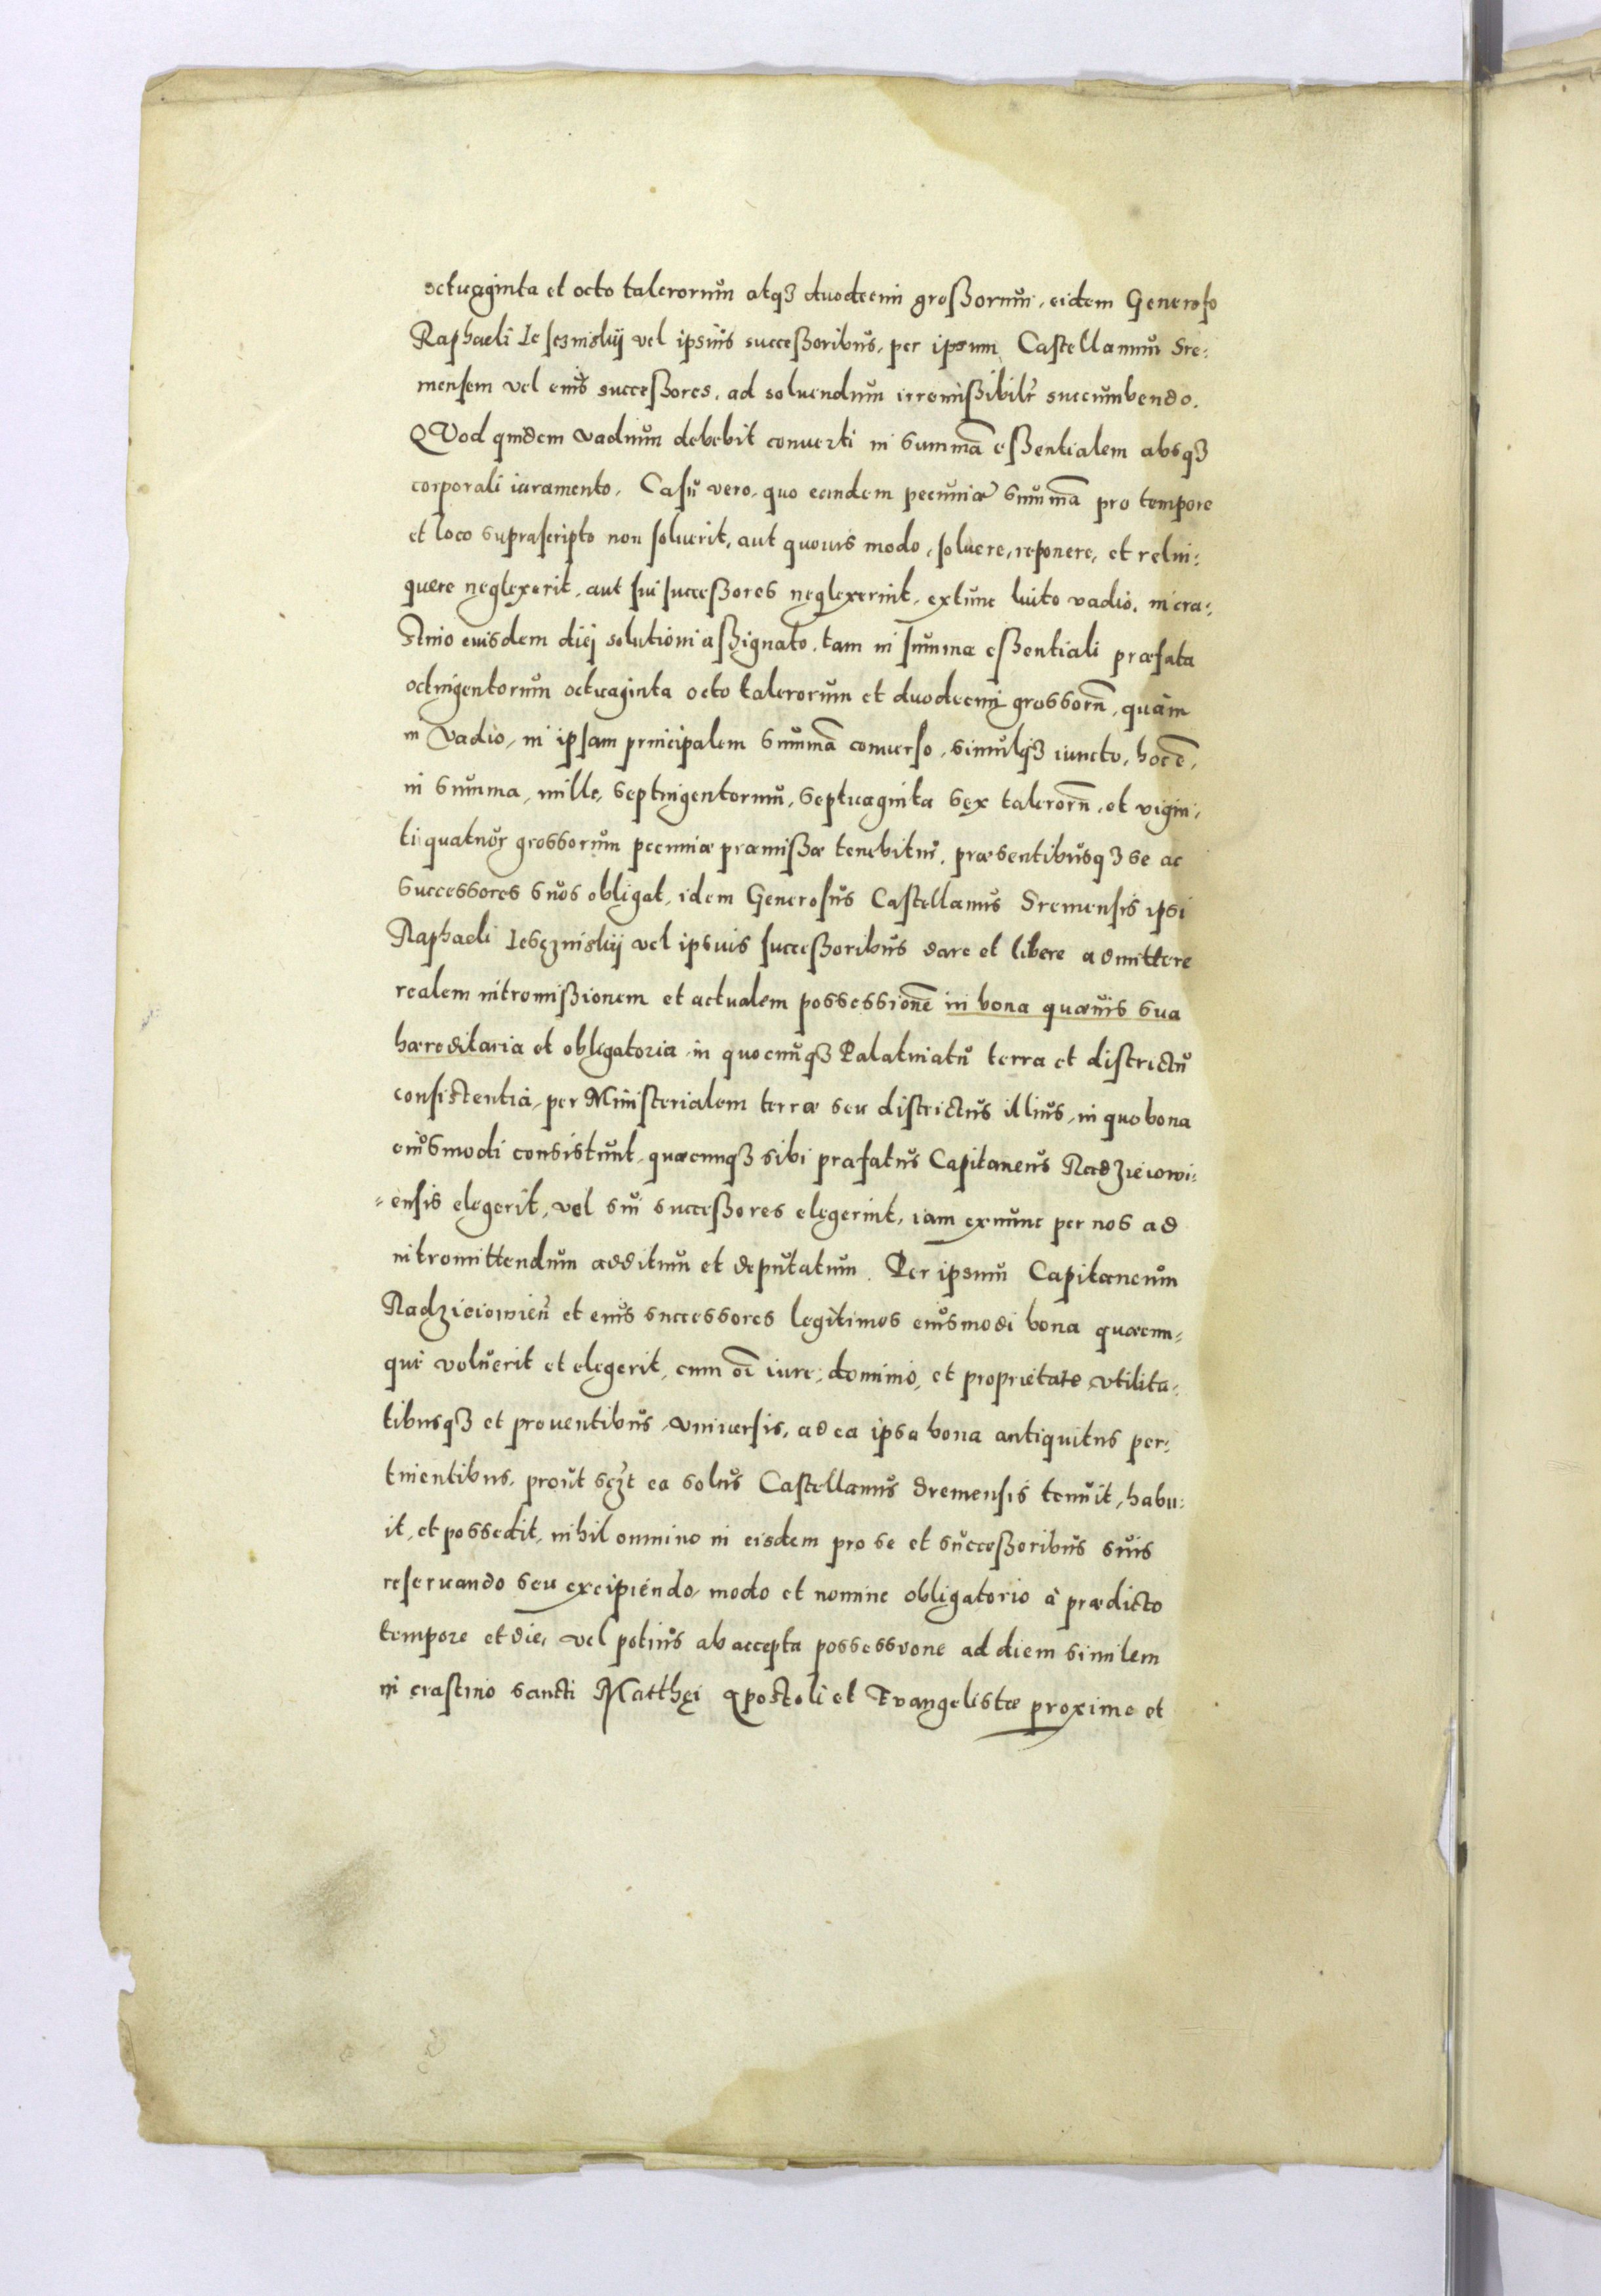 octuaginta et octo talerorum atqꝫ duodecim großorum, eidem Generoso
Raphaeli Leſzniskij vel ipsius succeßoribus, per ipsum Castellanum Sre:
mensem vel eius succeßores, ad soluendum irremißibilr succumbendo.
QVod quidem vadium debebit conuerti in summā eßentialem absqꝫ
corporali iuramento. Casu vero, quo eandem pecuniæ summā pro tempore
et loco suprascripto non soluerit, aut quouis modo, soluere, reponere, et relin:
quere neglexerit, aut sui succeßores neglexerint, extunc luito vadio, in cra:
stino euisdem diei solutioni aßignato, tam in summa eßentiali præfata
octingentorum octuaginta octo talerorum et duodecim grossorū, quàm
in vadio, in ipsam principalem summā conuerso, simulqꝫ iuncto, hoc ē,
in summa, mille, septingentorum, septuaginta sex talerorū, et vigin:
ti quatuor grossorum pecuniæ præmißæ tenebitur, præsentibusqꝫ se ac
successores suos obligat, idem Generosus Castellanus Sremensis ipsi
Raphaeli Lesczniskij vel ipsuis succeßoribus dare et libere admittere
realem intromißionem et actualem possessionē in bona quæuis sua
hæreditaria et obligatoria in quocunqꝫ Palatinatu terra et districtu
consistentia, per Ministerialem terræ seu districtus illius, in quo bona
eiusmodi consistunt, quæcunqꝫ sibi præfatus Capitaneus Radzieiowi:
ensis elegerit, vel sui succeßores elegerint, iam exnunc per nos ad
intromittendum additum et deputatum. Per ipsum Capitaneum
Radzieiowień et eius successores legitimos eiusmodi bona quæcun=
que voluerit et elegerit, cum oī iure, dominio, et proprietate, vtilita:
tibusqꝫ et prouentibus vniuersis, ad ea ipsa bona antiquitus per:
tinentibus, prout sczt ea solus Castellanus Sremensis tenuit, habu:
it, et possedit, nihil omnino in eisdem pro se et succeßoribus suis
reseruando seu excipiendo, modo et nomine obligatorio à prædicto
tempore et die, vel potius ab accepta possessione ad diem similem
in crastino sancti Matthęi Apostoli et Euangelistæ proxime et